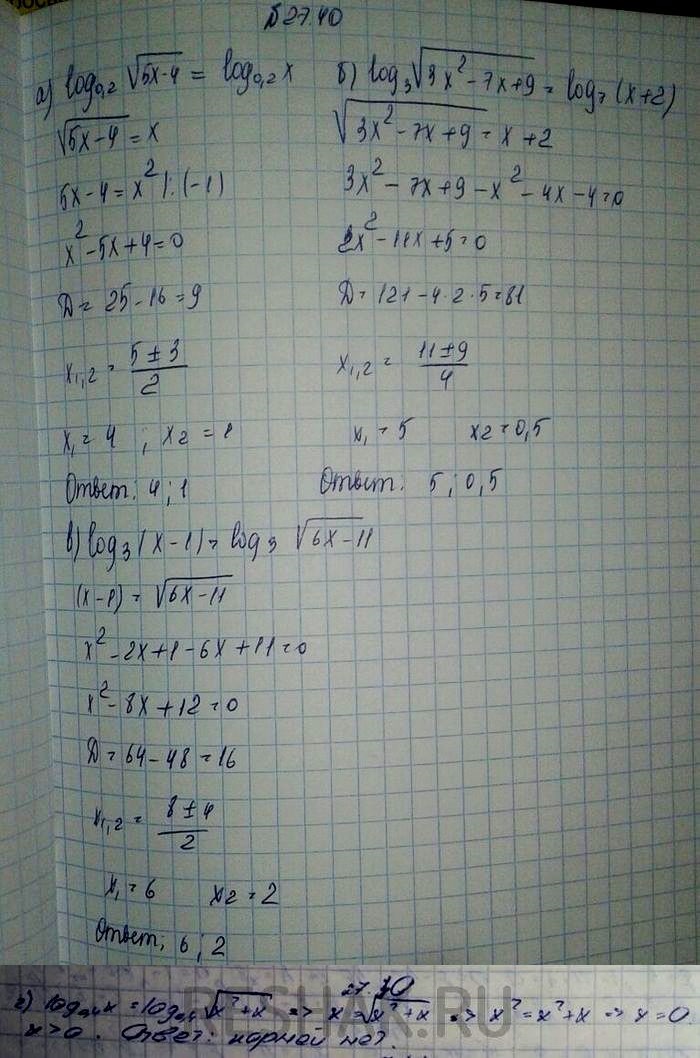 №27.40
а) log₀,₂ √(5x-4) = log₀,₂ x
√(5x-4) = x
5x-4 = x² |:(-1)
x²-5x+4=0
Д= 25-16=9
x₁,₂ = (5±3)/2
x₁=4 ; x₂ = 1
Ответ: 4; 1
б) log₃ √(3x²-7x+9) = log₇ (x+2)
√(3x²-7x+9) = x+2
3x²-7x+9-x²-4x-4=0
2x²-11x+5=0
Д=121-4·2·5=81
x₁,₂ = (11±9)/4
x₁=5 x₂=0,5
Ответ: 5; 0,5
в) log₃ (x-1) = log₃ √(6x-11)
(x-1) = √(6x-11)
x²-2x+1-6x+11=0
x²-8x+12=0
Д=64-48=16
x₁,₂ = (8±4)/2
x₁=6 x₂=2
Ответ: 6; 2
27.40
г) log₀,₄ x = log₀,₄ √(x²+x) => x = √(x²+x) => x²=x²+x => x=0
x>0. Ответ: корней нет.
RESHAK.RU